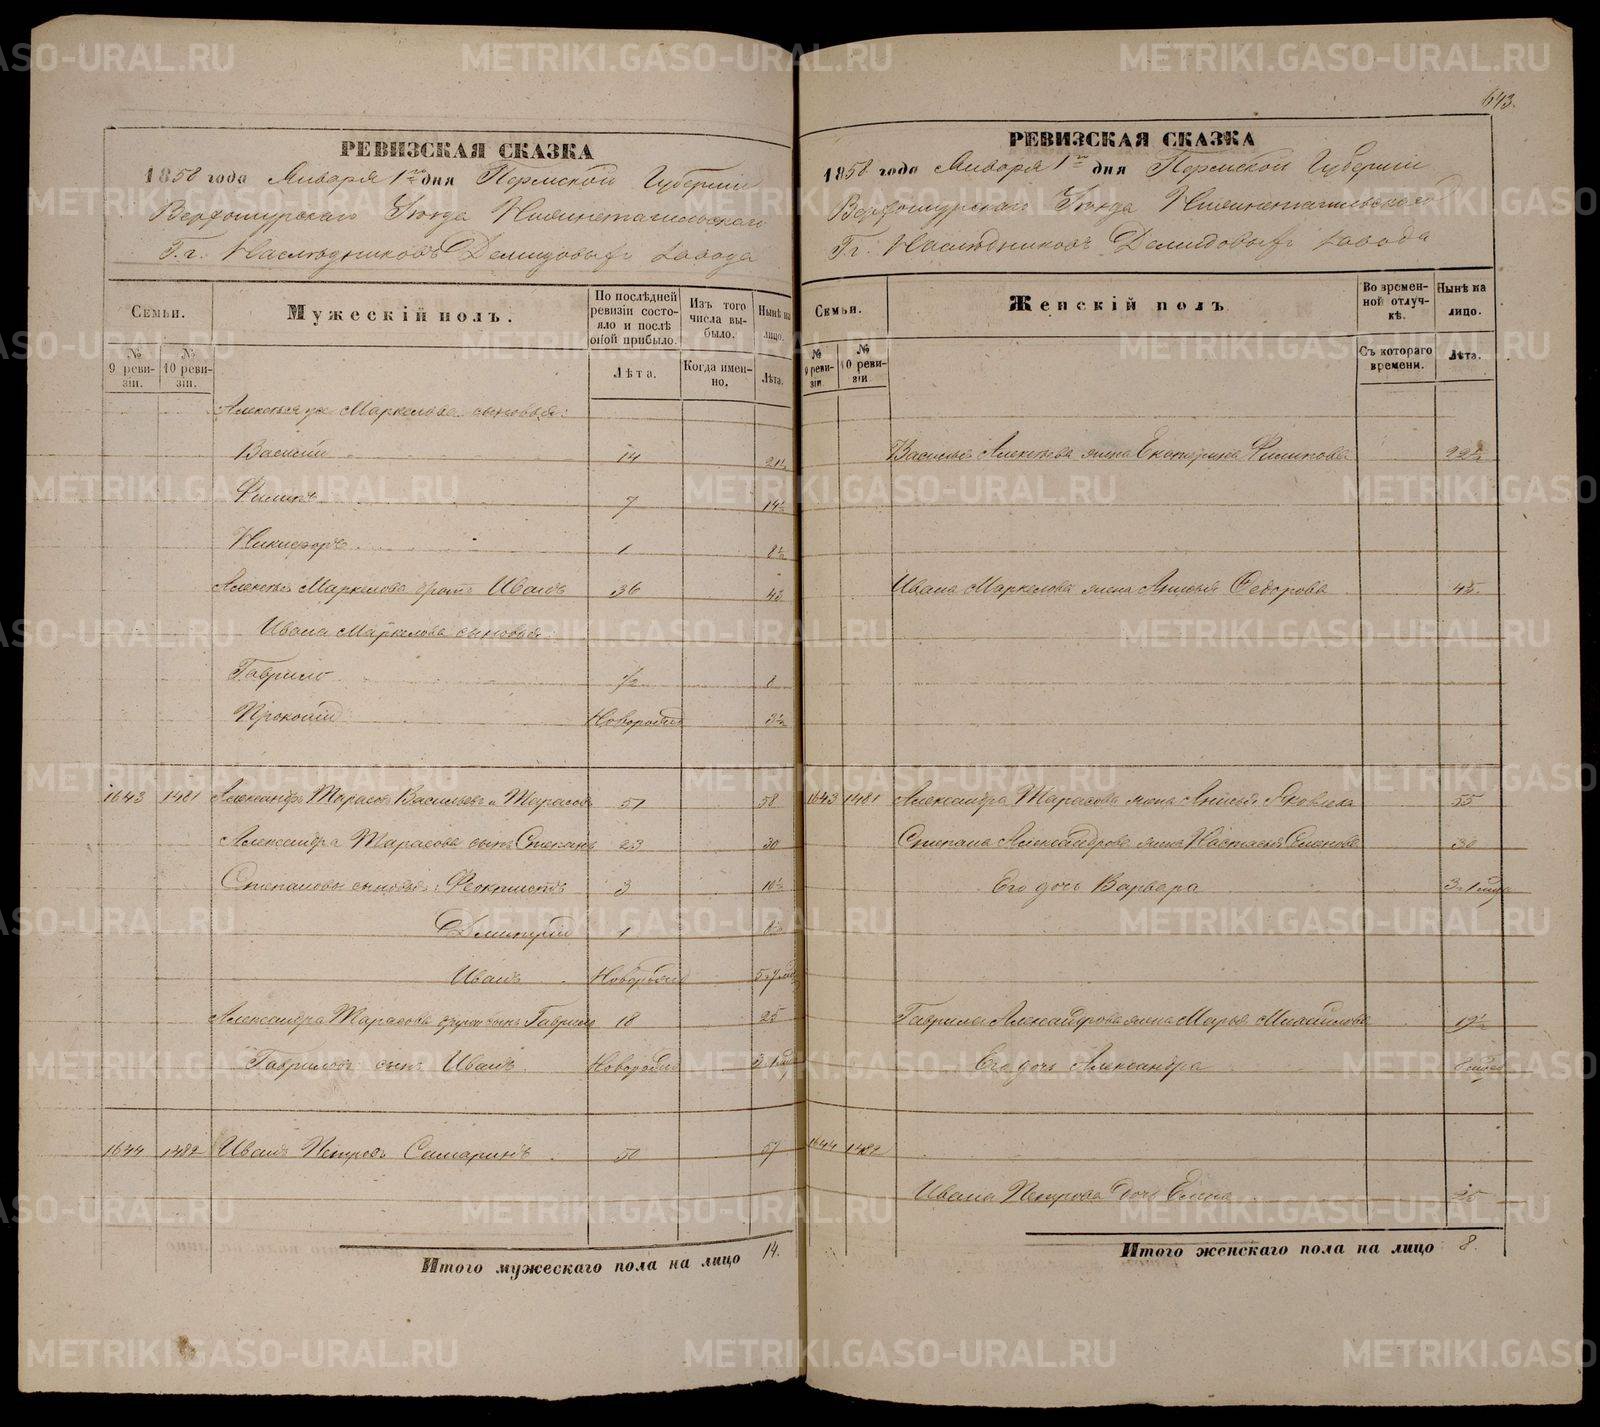 643.
РЕВИЗСКАЯ СКАЗКА
1858 года Января 1го дня Пермской Губернiи
Верхотурскаго Уѣзда Нижнетагильскаго
Г.г. Наслѣдниковъ Демидовыхъ завода
Семьи.
Мужескiй полъ.
По послѣдней ревизiи состояло и послѣ оной прибыло.
Изъ того числа выбыло.
Нынѣ на лицо.
№ 9 ревизiи.
№ 10 ревизiи.
Лѣта.
Когда именно.
Лѣта.
Алексѣя Маркелова сыновья:
Василiй 14 21½
Филипъ 7 14½
Никифоръ 1 8½
Алексѣя Маркелова братъ Иванъ 36 43
Ивана Маркелова сыновья
Гаврило ½ 8
Прокопiй Новорожд 3½
1643 1481 Александръ Тарасовъ Васильевъ Тарасовъ 51 58
Александра Тарасова сынъ Степанъ 23 30
Степановы сыновья: Феоктистъ 3 10½
Дмитрiй 1 8½
Иванъ Новорожд
Александра Тарасова сынъ Гаврило 18 25
Гавриловъ сынъ Иванъ Новорожд
1644 1482 Иванъ Петровъ Самаринъ 50 57
Итого мужескаго пола на лицо 14.
РЕВИЗСКАЯ СКАЗКА
1858 года Января 1го дня Пермской Губернiи
Верхотурскаго Уѣзда Нижнетагильскаго
Г.г. Наслѣдниковъ Демидовыхъ завода
Семьи.
Женскiй полъ.
Во временной отлучкѣ.
Нынѣ на лицо.
№ 9 ревизiи
№ 10 ревизiи
Съ котораго времени.
Лѣта.
Василья Алексѣева жена Екатерина Филипова
Ивана Маркелова жена Анисья Федорова 45
1643 1481 Александра Тарасова жена Анисья Яковлева 55
Степана Александрова жена Настасья 30
Его дочь Варвара
Гаврила Александрова жена Марья Михайлова 19½
Его дочь Александра
1644 1482
Ивана Петрова дочь Елена 25
Итого женскаго пола на лицо 8.